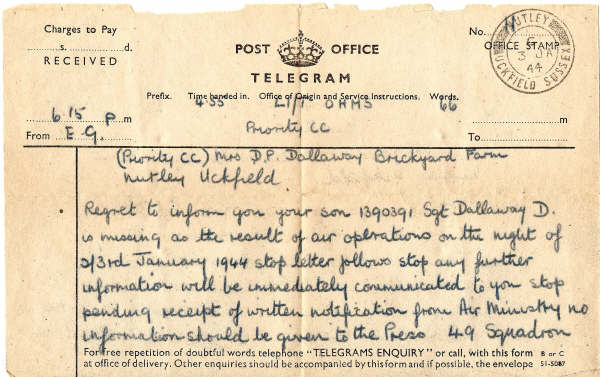 Charges to Pay
s. d.
RECEIVED
POST OFFICE
TELEGRAM
No.
OFFICE STAMP
NUTLEY
3 JA
44
UCKFIELD SUSSEX
Prefix. Time handed in. Office of Origin and Service Instructions. Words.
4.55 OHMS 66
6 15 p m
Priority CC
From E.G.
m
To
(Priority CC) Mrs D.P. Dallaway Brickyard Farm
Nutley Uckfield.
Regret to inform you your son 1390391 Sgt Dallaway D.
is missing as the result of air operations on the night of
2/3rd January 1944 stop letter follows stop any further
information will be immediately communicated to you stop
pending receipt of written notification from Air Ministry no
information should be given to the Press 49 Squadron
For free repetition of doubtful words telephone "TELEGRAMS ENQUIRY" or call, with this form B or C
at office of delivery. Other enquiries should be accompanied by this form and if possible, the envelope 51-5087